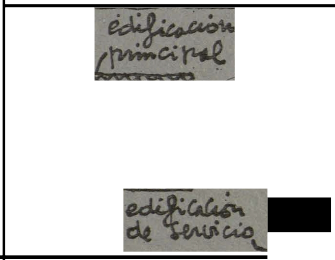 edificación
principal
edificación
de servicio